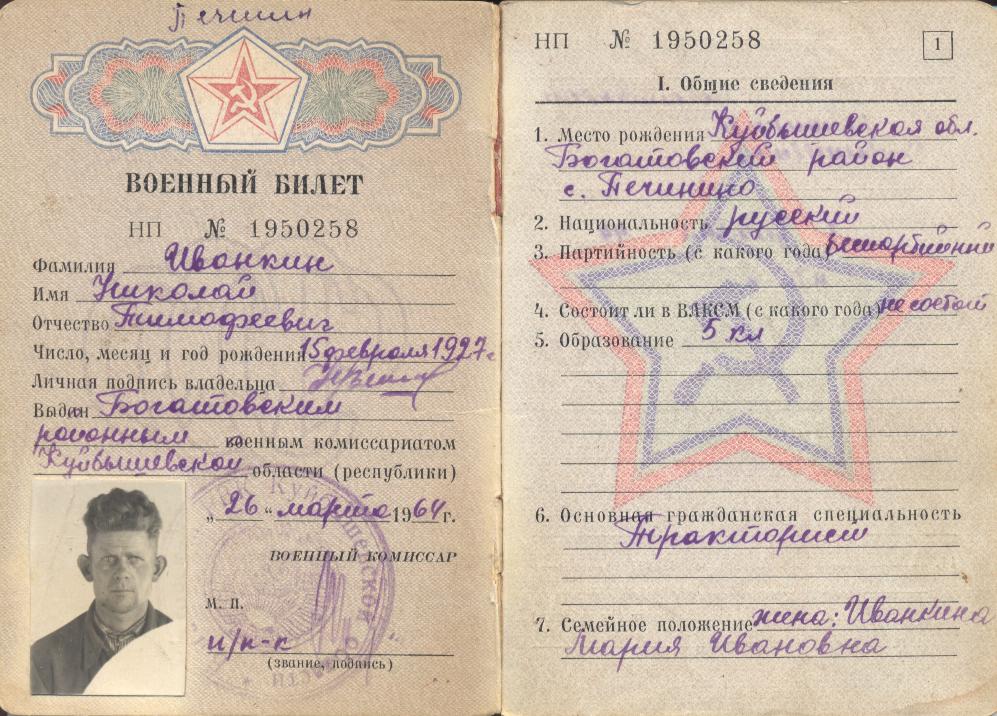 Печинин
ВОЕННЫЙ БИЛЕТ
НП № 1950258
Фамилия Иванкин
Имя Николай
Отчество Тимофеевич
Число, месяц и год рождения 15 февраля 1927 г.
Личная подпись владельца
Выдан Богатовским
районным военным комиссариатом
Куйбышевской области (республики)
„26“ марта 1964 г.
ВОЕННЫЙ КОМИССАР
М. П.
п/п-к
(звание, подпись)
НП № 1950258
1
I. Общие сведения
1. Место рождения Куйбышевская обл.
Богатовский район
с. Печинино
2. Национальность русский
3. Партийность (с какого года) беспартийный
4. Состоит ли в ВЛКСМ (с какого года) не состоит
5. Образование 5 кл
6. Основная гражданская специальность
Тракторист
7. Семейное положение жена: Иванкина
Мария Ивановна